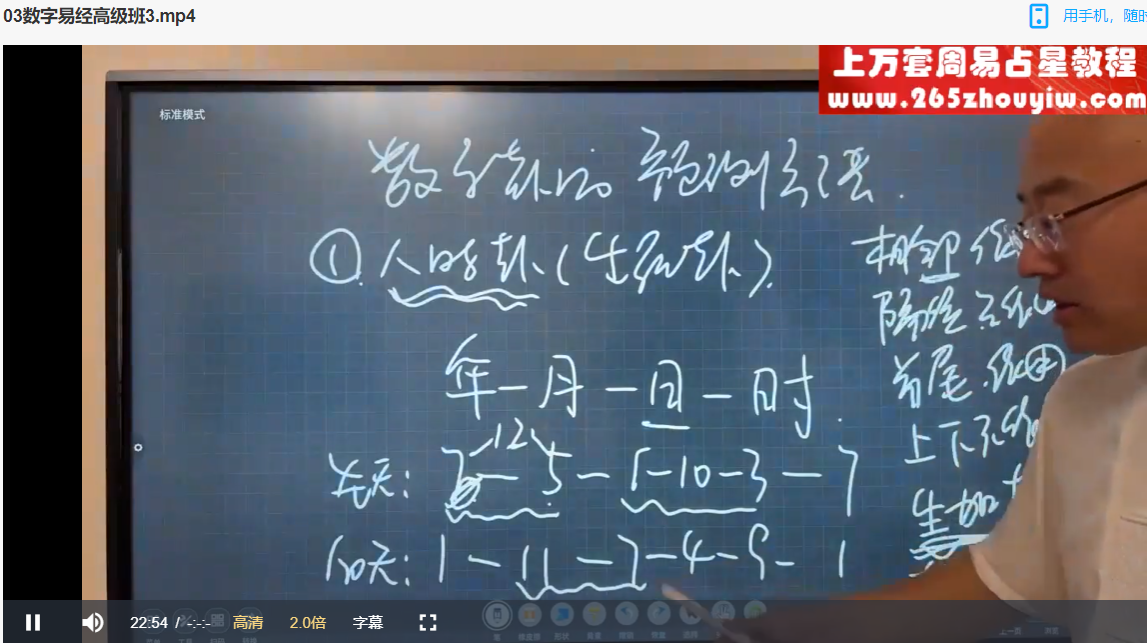 03数字易经高级班3.mp4
用手机，随时
上万套周易占星教程
www.265zhouyiw.com
标准模式
数字卦的预测方法.
① 人时卦(生辰卦)
年-月-日-时.
12
先天: 7-5-5-10-3-7
后天: 1-11-7-4-9-1
相邻
隔位
首尾
上下不
生加
22:54 / -:-:-
高清
2.0倍
字幕